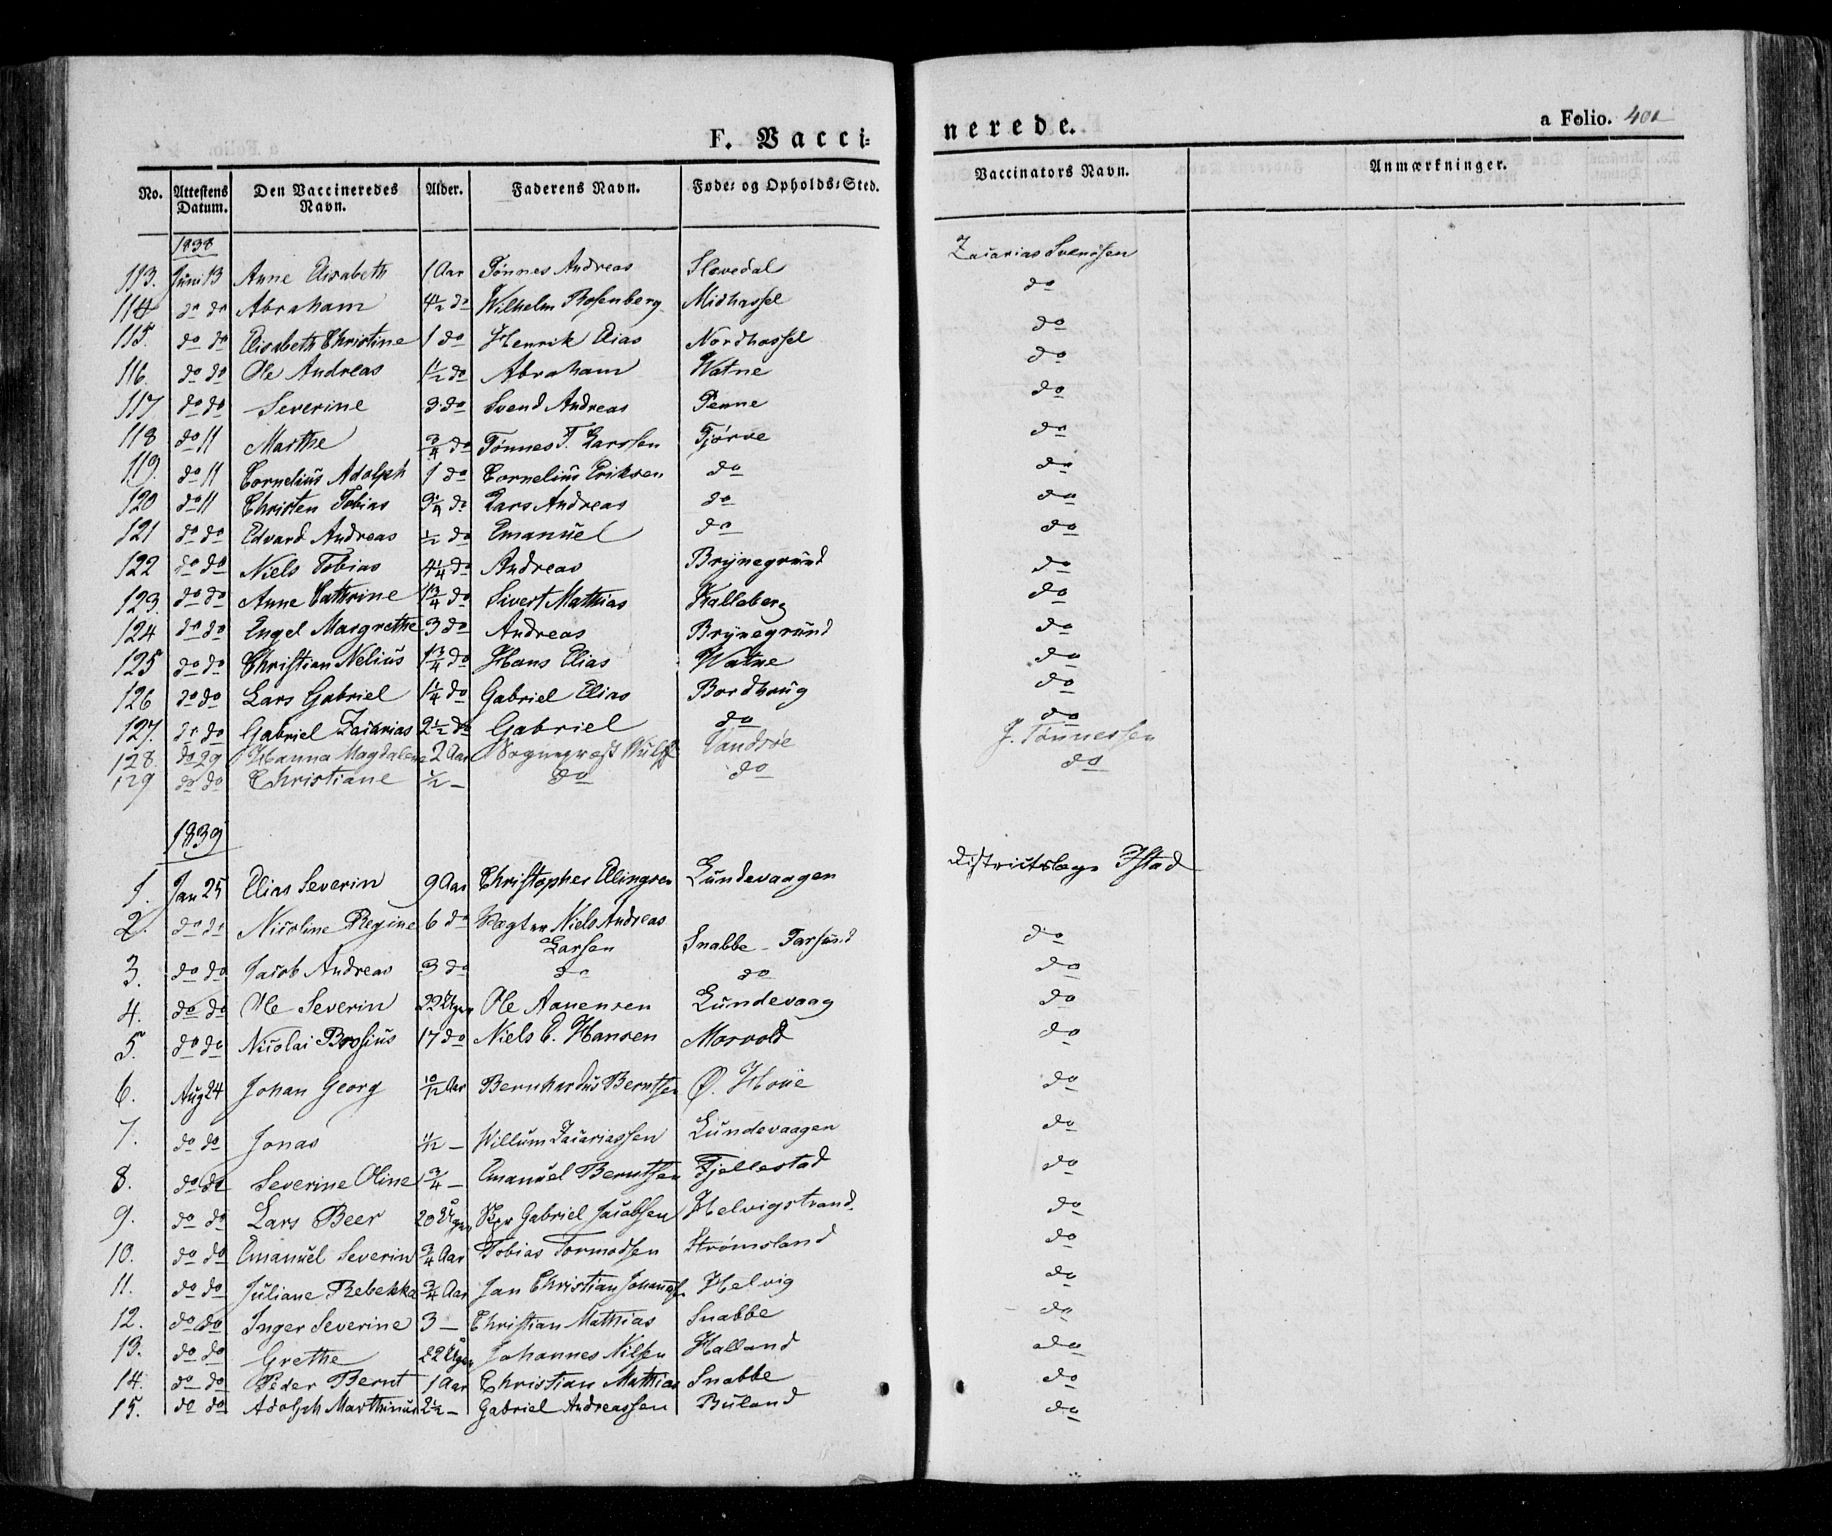 F. Vacci=
nerede.
a Folio. 401
No. Attestens Datum. Den Vaccineredes Navn. Alder. Faderens Navn. Føde= og Opholds=Sted. Vaccinators Navn. Anmærkninger.
1838
113. Juni 13 Anne Elisabeth 1 Aar Tønnes Andreas Slevedal Zacarias Svendsen
114 do do Abraham 4½ do Wilhelm Rosenberg Midhassel do
115. do do Elisabeth Christine 1 do Henrik Elias Nordhassel do
116. do do Ole Andreas 1½ do Abraham Watne do
117 do do Severine 3 do Svend Andreas Penne do
118 do 11 Marthe ¾ do Tønnes T. Larssen Tjørve do
119. do 11 Cornelius Adolph 1 do Cornelius Eriksen do do
120 do 11 Christen Tobias ¾ do Lars Andreas do do
121 do do Edvard Andreas ½ do Emanuel do do
122 do do Niels Tobias 4¼ do Andreas Brynegrund do
123. do do Anne Cathrine 1¾ do Sivert Mathias Kalleberg do
124 do do Engel Margrethe 3 do Andreas Brynegrund do
125 do do Christian Nelius 1¾ do Hans Elias Watne do
126 do do Lars Gabriel 1¼ do Gabriel Elias Bordhoug do
127. do do Gabriel Zacarias 2½ do Gabriel do do
128. do 29 Hanna Magdalene 2 Aar Sognepræst Wulff Vandsøe J. Tønnessen
129 do do Christiane ½ – do do do
1839
1. Jan 25 Elias Severin 9 Aar Christopher Elingsen Lundevaagen Districtslæge Ystad
2. do do Nicoline Regine 6 do Vægter Niels Andreas
Larsen Snabbe – Farsund do
3. do do Jacob Andreas 3 do do do do
4. do do Ole Severin 22 Uger Ole Aanensen Lundevaag do
5. do do Nicolai Brosius 17 do Niels C. Hansen Morvold do
6. Aug 24 Johan Georg 10/12 Aar Bernhardus Berntsen Ø. Houe do
7. do do Jonas 11/12 – Willum Zacariassen Lundevaagen do
8. do do Severine Oline 1¾ – Emanuel Berntsen Fjellestad do
9. do do Lars Beer 20 Uger Gabriel Jacobsen Helvigstrand do
10. do do Emanuel Severin ¾ Aar Tobias Tormodsen Strømsland do
11. do do Juliane Rebekka ¾ Aar Jan Christian Helvig do
12. do do Inger Severine 3 – Christian Mathias Snabbe do
13. do do Grethe 22 Uger Johannes Nilsen Halland do
14. do do Peder Bernt 1 Aar Christian Mathias Snabbe do
15. do do Adolph Marthinus 2½ – Gabriel Andreassen Buland do